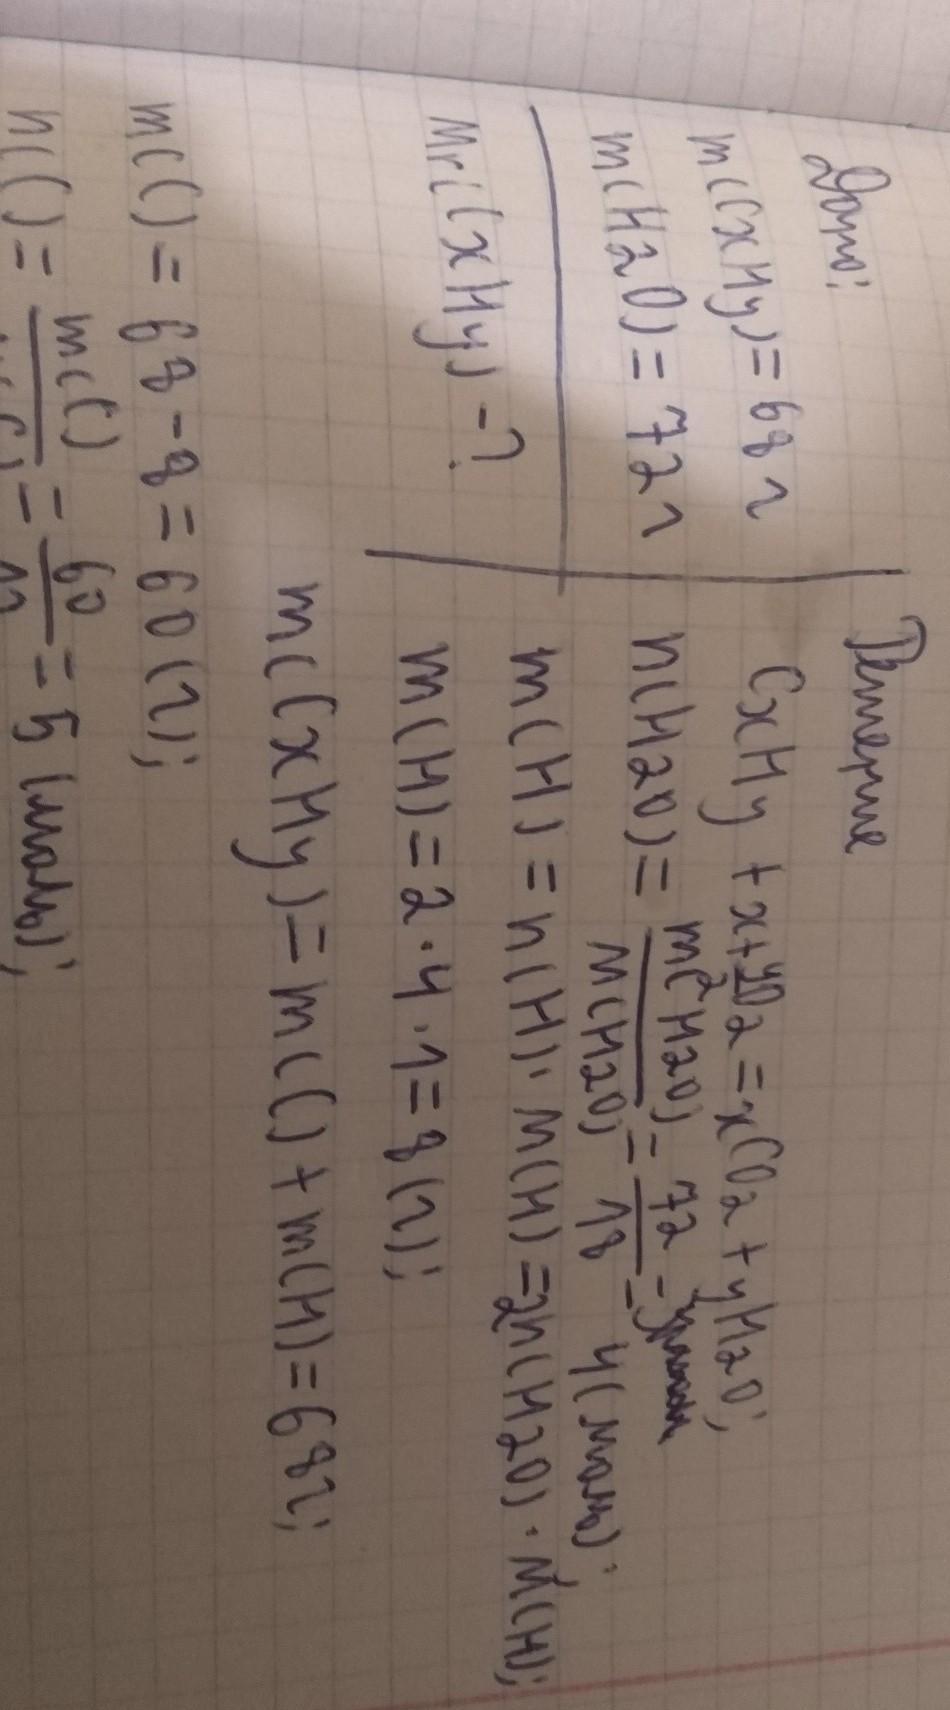 Дано:
m(CxHy) = 68 г
m(H2O) = 72 г
Mr(CxHy) - ?
Решение
CxHy + x+y/2O2 = xCO2 + yH2O;
n(H2O) = m(H2O)/M(H2O) = 72/18 = 4 (моль);
m(H) = n(H) · M(H) = 2n(H2O) · M(H);
m(H) = 2 · 4 · 1 = 8 (г);
m(CxHy) = m(C) + m(H) = 68г;
m(C) = 68 - 8 = 60 (г);
n(C) = m(C)/M(C) = 60/12 = 5 (моль);